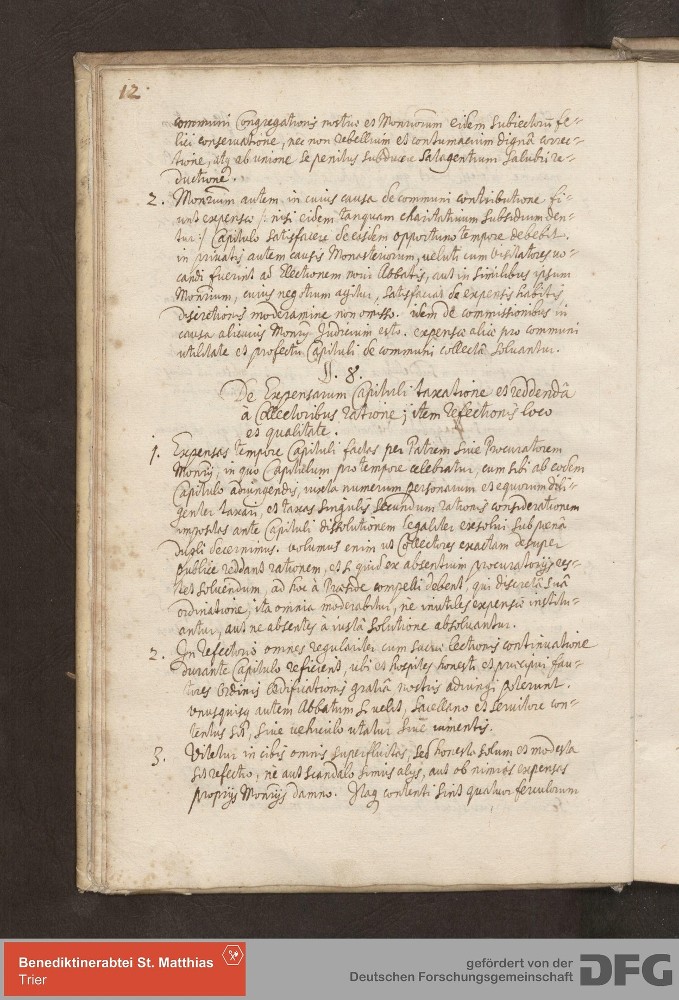 12.
communi Congregationis nostræ et Monriorum eidem subiectorū fe-
lici conservatione, nec non rebellium et contumacium dignâ correc-
tione, atq ab unione se penitus subducere satagentium salubri re-
ductione.
2. Monrium autem in cuius causa de communi contributione fi-
unt expensæ /: nisi eidem tanquam charitativum subsidium den-
tur :/ Capitulo satisfacere de eisdem opportuno tempore debebit.
in privatis autem causis Monasteriorum, veluti cum visitatores vo-
candi fuerint ad Electionem novi Abbatis, aut in similibus ipsum
Monrium, cuius negotium agitur, satisfaciat de expensis habitis
discretionis moderamine non omisso. idem de commissionibus in
causa alicuius Monrij Judicium esto. expensæ aliæ pro communi
utilitate et profectu Capituli de communi collectâ solvantur.
§. 8.
De Expensarum Capituli taxatione et reddendâ
à Collectoribus ratione; item refectionis loco
et qualitate.
1. Expensas tempore Capituli factas per Patrem sive Procuratorem
Monrij, in quo Capitulum pro tempore celebratur, cum sibi ab eodem
Capitulo adiungendis, iuxta numerum personarum et equorum dili-
genter taxari, et taxas singulis secundum rationis considerationem
impositas ante Capituli dissolutionem legaliter exsolvi sub pœnâ
dupli decernimus. volumus enim ut Collectores exactam desuper
publice reddant rationem, et si quid ex absentium procuratorijs res-
tet solvendum, ad hoc à Præside compelli debent, qui discretâ suâ
ordinatione, ita omnia moderabitur, nè inutiles expensæ institu-
antur, aut ne absentes à iustâ solutione absolvantur.
2. In refectorio omnes regulariter cum sacræ lectionis continuatione
durante Capitulo reficient, ubi et hospites honesti et præcipui fau-
tores Ordinis ædificationis gratiâ nostris adiungi poterunt.
unusquisq autem Abbatum si velit, sacellano et servitore con-
tentus sit, sive vehiculo utatur sive iumentis.
3. Vitetur in cibis omnis superfluitas, sed honesta solum et modesta
sit refectio, nè aut scandalo simus alijs, aut ob nimias expensas
proprijs Monrijs damno. Itaq contenti sint quatuor ferculorum
Benediktinerabtei St. Matthias
Trier
gefördert von der
Deutschen Forschungsgemeinschaft
DFG